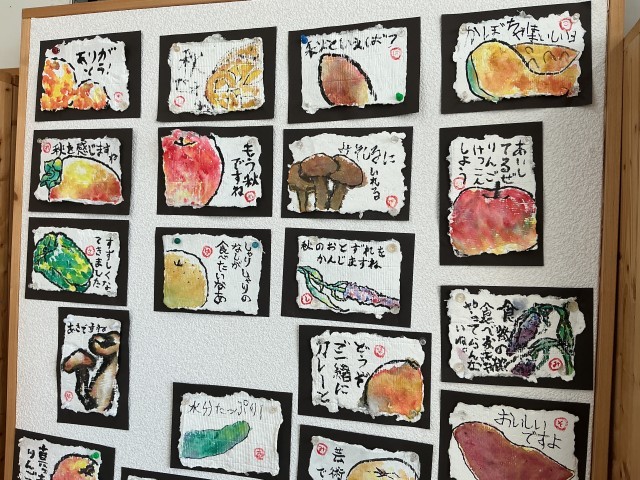 ありが
とう!
秋
秋といえば?
かぼちゃ美味しいよ
秋を感じますね
もう秋
ですね
に
いれる
あいし
てるぜ
りんご
けっこん
しよう
すずしくな
てきました
しゃりしゃりの
なしが
食べたいなあ
秋のおとずれを
かんじますね
あきですね
どうぞ
ご一緒に
カレーと
食欲の秋
水分たっぷり!
おいしい
ですよ
りんご
芸術